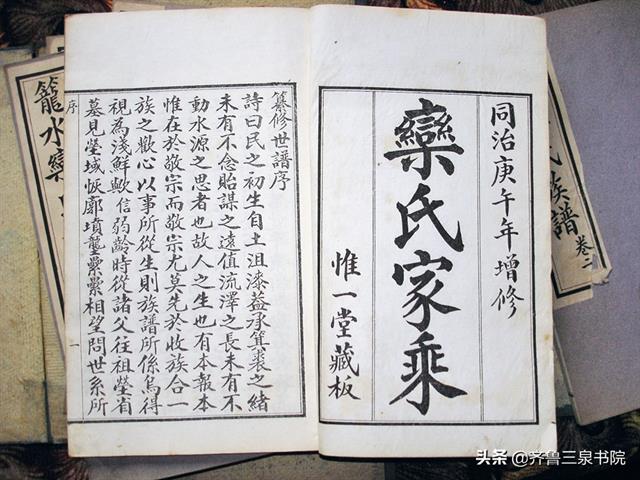 同治庚午年增修
欒氏家乘
惟一堂藏板
纂修世譜序
詩曰民之初生自土沮漆益承箕裘之緒
未有不念貽謀之遠值流澤之長未有不
動水源之思者也故人之生也有本報本
惟在於敬宗而敬宗尤莫先於收族合一
族之歡心以事所從生則族譜所係烏得
視為淺鮮歟信弱齡時從諸父往祖塋省
墓見塋域恢廓墳壟纍纍相望問世系所
序 一
氏族譜
卷二
籠水欒
头条 @齐鲁三泉书院